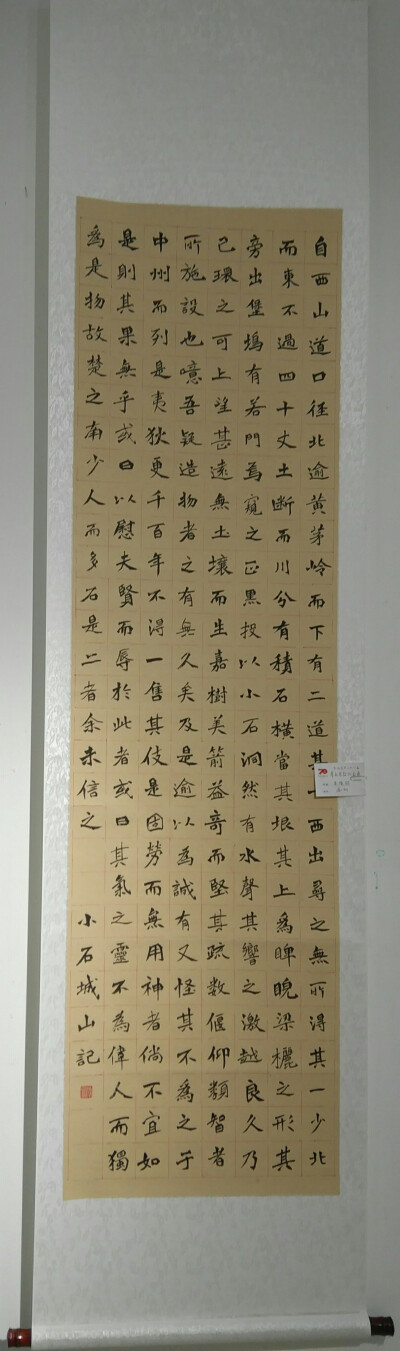 自西山道口徑北逾黃茅岭而下有二道其一西出尋之無所得其一少北
而東不過四十丈土斷而川分有積石橫當其垠其上爲睥睨梁欐之形其
旁出堡塢有若門焉窺之正黑投以小石洞然有水聲其響之激越良久乃
已環之可上望甚遠無土壤而生嘉樹美箭益奇而堅其疏數偃仰類智者
所施設也噫吾疑造物者之有無久矣及是逾以為誠有又怪其不爲之于
中州而列是夷狄更千百年不得一售其伎是固勞而無用神者倘不宜如
是則其果無乎或曰以慰夫賢而辱於此者或曰其氣之靈不為偉人而獨
爲是物故楚之南少人而多石是二者余未信之
小石城山記